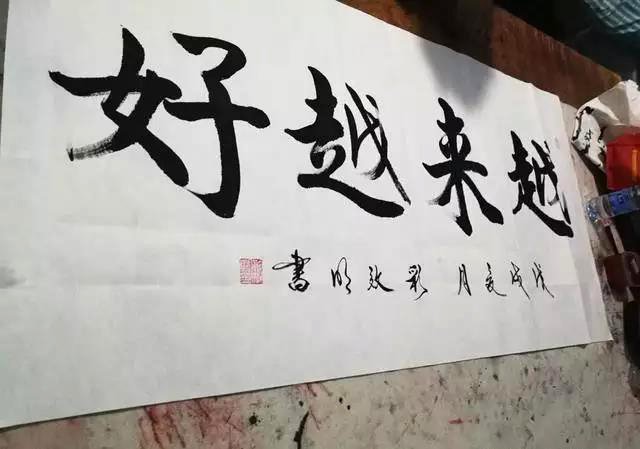 越来越好
戊戌夏月 效明書